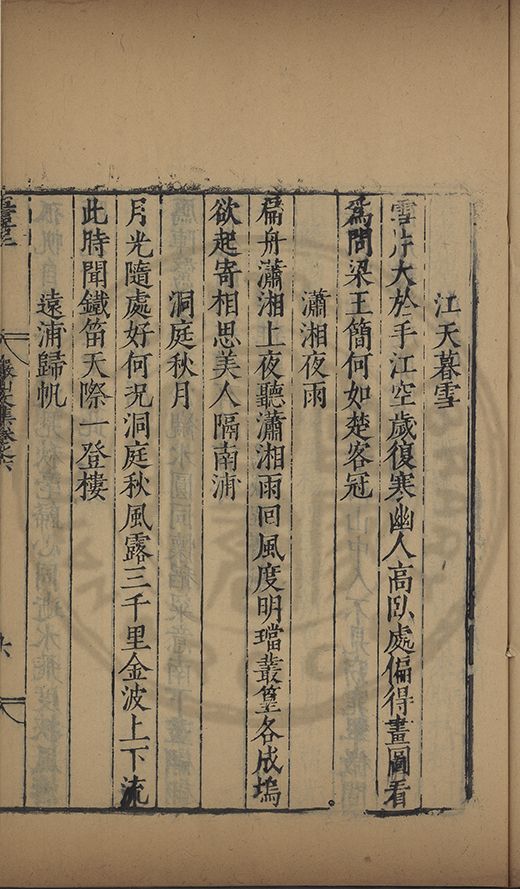 江天暮雪
雪片大於手江空歲復寒幽人高臥處偏得畫圖看
爲問梁王簡何如楚客冠
瀟湘夜雨
扁舟瀟湘上夜聽瀟湘雨回風度明璫叢篁各成塢
欲起寄相思美人隔南浦
洞庭秋月
月光隨處好何況洞庭秋風露三千里金波上下流
此時聞鐵笛天際一登樓
遠浦歸帆